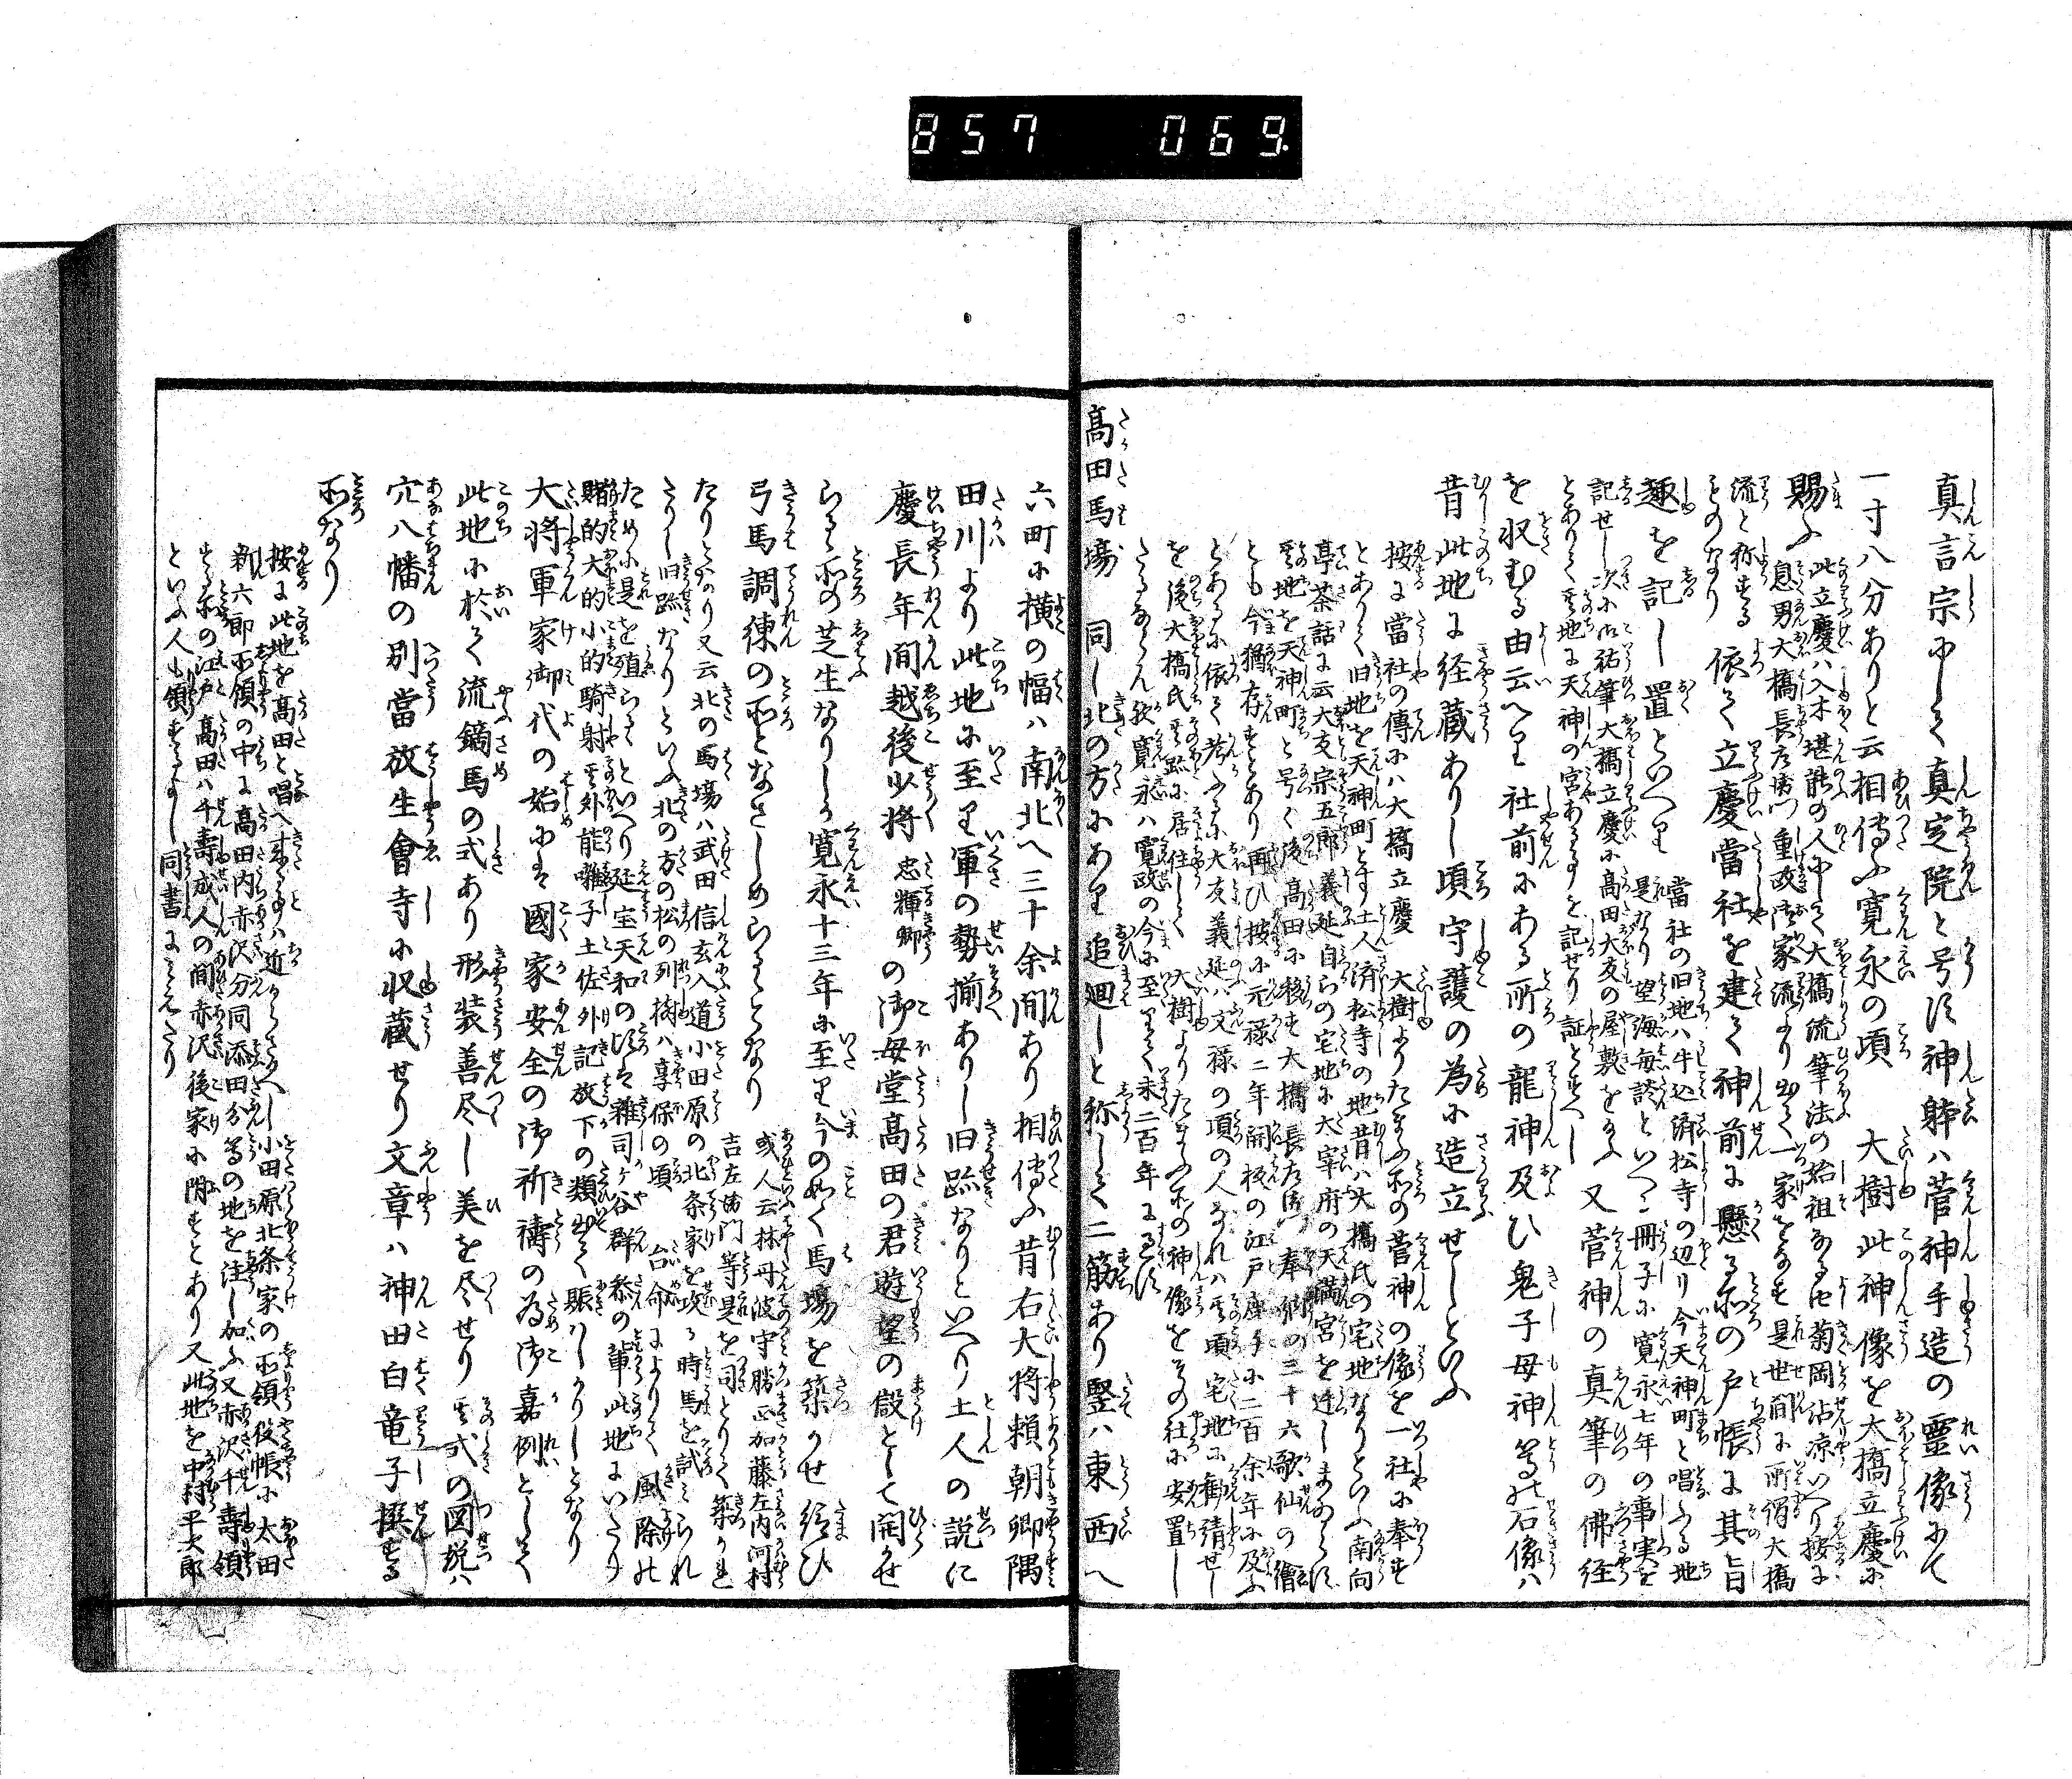 857 069.
真言宗にして真定院と号す神躰ハ菅神手造の霊像にて
一寸八分ありと云相傳ふ寛永の頃 大樹此神像を大橋立慶に
賜ふ 此立慶ハ入木堪能の人にして大橋流筆法の始祖なるよし菊岡沾凉いへり按に
息男大橋長左衛門重政御家流より出て一家をなす是世間に所謂大橋
流と称する
ものなり 依て立慶當社を建て神前に懸る所の戸帳に其旨
趣を記し置といへり 當社の旧地ハ牛込済松寺の辺り今天神町と唱ふる地
是なり 望海毎談といへる冊子に寛永七年の事実を
記せし次に御祐筆大橋立慶に高田大友の屋敷を給ふ
とありて其地に天神の宮あるよしを記せり証とすへし 又菅神の真筆の佛経
を収むる由云へり社前にある所の龍神及ひ鬼子母神等の石像ハ
昔此地に経蔵ありし頃守護の為に造立せしといふ
按に當社の傳にハ大橋立慶 大樹よりたまふ所の菅神の像を一社に奉す
とありて旧地を天神町とす土人済松寺の地昔ハ大橋氏の宅地なりといふ南向
亭茶話に云大友宗五郎義延自らの宅地に太宰府の天満宮を迁しまゐらす
其地を天神町と号く後高田に移す大橋長左衛門奉納の三十六歌仙の繪
とも今猶存すとあり再ひ按に元禄二年開板の江戸惣鹿子に二百余年に及ふ
とあるに依て考ふるに大友義延ハ文禄の頃の人なれハ其頃宅地に勧請せし
を後大橋氏其跡に居住して 大樹よりたまふ所の神像をその社に安置し
たるならん歟寛永ハ寛政の今に至りて未二百年にみたす
高田馬場 同し北の方にあり追廻しと称して二筋あり竪ハ東西へ
六町に横の幅ハ南北へ三十余間あり相傳ふ昔右大将頼朝卿隅
田川より此地に至り軍の勢揃ありし旧跡なりといへり土人の説に
慶長年間越後少将 忠輝卿 の御母堂高田の君遊望の設として開せ
らるゝ所の芝生なりしか寛永十三年に至り今の如く馬場を築かせ給ひ
弓馬調練の所となさしめらるゝとなり 或人云林丹波守勝正加藤左内河村
吉左衛門等是を司とりて築かれ
たりとなり又云北の馬場ハ武田信玄入道小田原の北条家を攻る時馬を試みられ
たりし旧跡なりといふ北の方の松の列樹ハ享保の頃 台命によりて風除の
ために是を殖らるゝといへり延宝天和の頃ハ雑司ヶ谷群参の輩此地にいたり
賭的大的小的騎射其外能囃子土佐外記放下の類出て賑ハヽしかりしとなり
大将軍家御代の始にハ國家安全の御祈祷の為御嘉例として
此地に於て流鏑馬の式あり形装善尽し美を尽せり其式の図説ハ
穴八幡の別當放生會寺に収蔵せり文章ハ神田白竜子撰する
所なり
按に此地を高田と唱へ来る事ハ近からさるへし小田原北条家の所領役帳に太田
新六郎所領の中に高田内赤沢分同添田分等の地を注し加ふ又赤沢千壽領
する所の江戸高田ハ千壽成人の間赤沢後家に附すとあり又此地を中村平次郎
といふ人も領するよし同書にみえたり